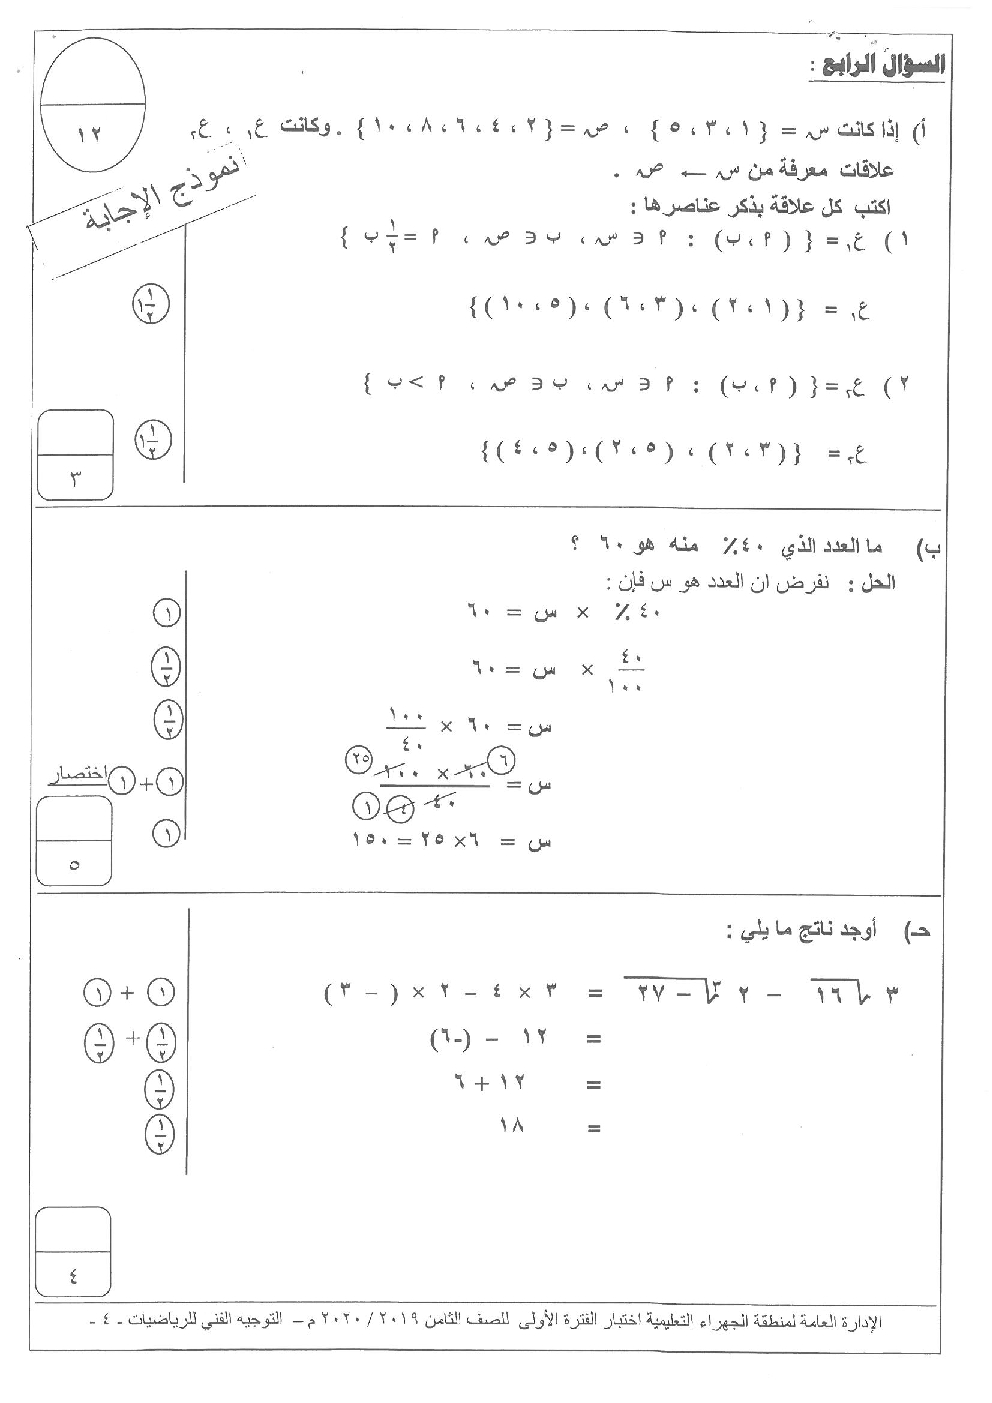 السؤال الرابع :
١٢
نموذج الإجابة
أ) إذا كانت س = { ١ ، ٣ ، ٥ } ، ص = { ٢ ، ٤ ، ٦ ، ٨ ، ١٠ } . وكانت ع١ ، ع٢
علاقات معرفة من س ← ص .
اكتب كل علاقة بذكر عناصرها :
١ ) ع١ = { ( ٩ ، ب ) : ٩ ∈ س ، ب ∈ ص ، ٩ = ١/٢ ب }
ع١ = { ( ١ ، ٢ ) ، ( ٣ ، ٦ ) ، ( ٥ ، ١٠ ) }
١ ١/٢
٢ ) ع٢ = { ( ٩ ، ب ) : ٩ ∈ س ، ب ∈ ص ، ٩ > ب }
ع٢ = { ( ٣ ، ٢ ) ، ( ٥ ، ٢ ) ، ( ٥ ، ٤ ) }
١ ١/٢
٣
ب) ما العدد الذي ٤٠٪ منه هو ٦٠ ؟
الحل : نفرض ان العدد هو س فإن :
٤٠ ٪ × س = ٦٠ ١
٤٠/١٠٠ × س = ٦٠ ١/٢
س = ٦٠ × ١٠٠/٤٠ ١/٢
س = ٦٠ × ١٠٠ / ٤٠ ٦ ٢٥ ٤ ١ ١ + ١ اختصار
س = ٦ × ٢٥ = ١٥٠ ١
٥
حـ) أوجد ناتج ما يلي :
٣ √١٦ − ٢ ∛−٢٧ = ٣ × ٤ − ٢ × ( − ٣ ) ١ + ١
= ١٢ − (-٦) ١/٢ + ١/٢
= ١٢ + ٦ ١/٢
= ١٨ ١/٢
٤
الإدارة العامة لمنطقة الجهراء التعليمية اختبار الفترة الأولى للصف الثامن ٢٠١٩ / ٢٠٢٠ م – التوجيه الفني للرياضيات - ٤ -